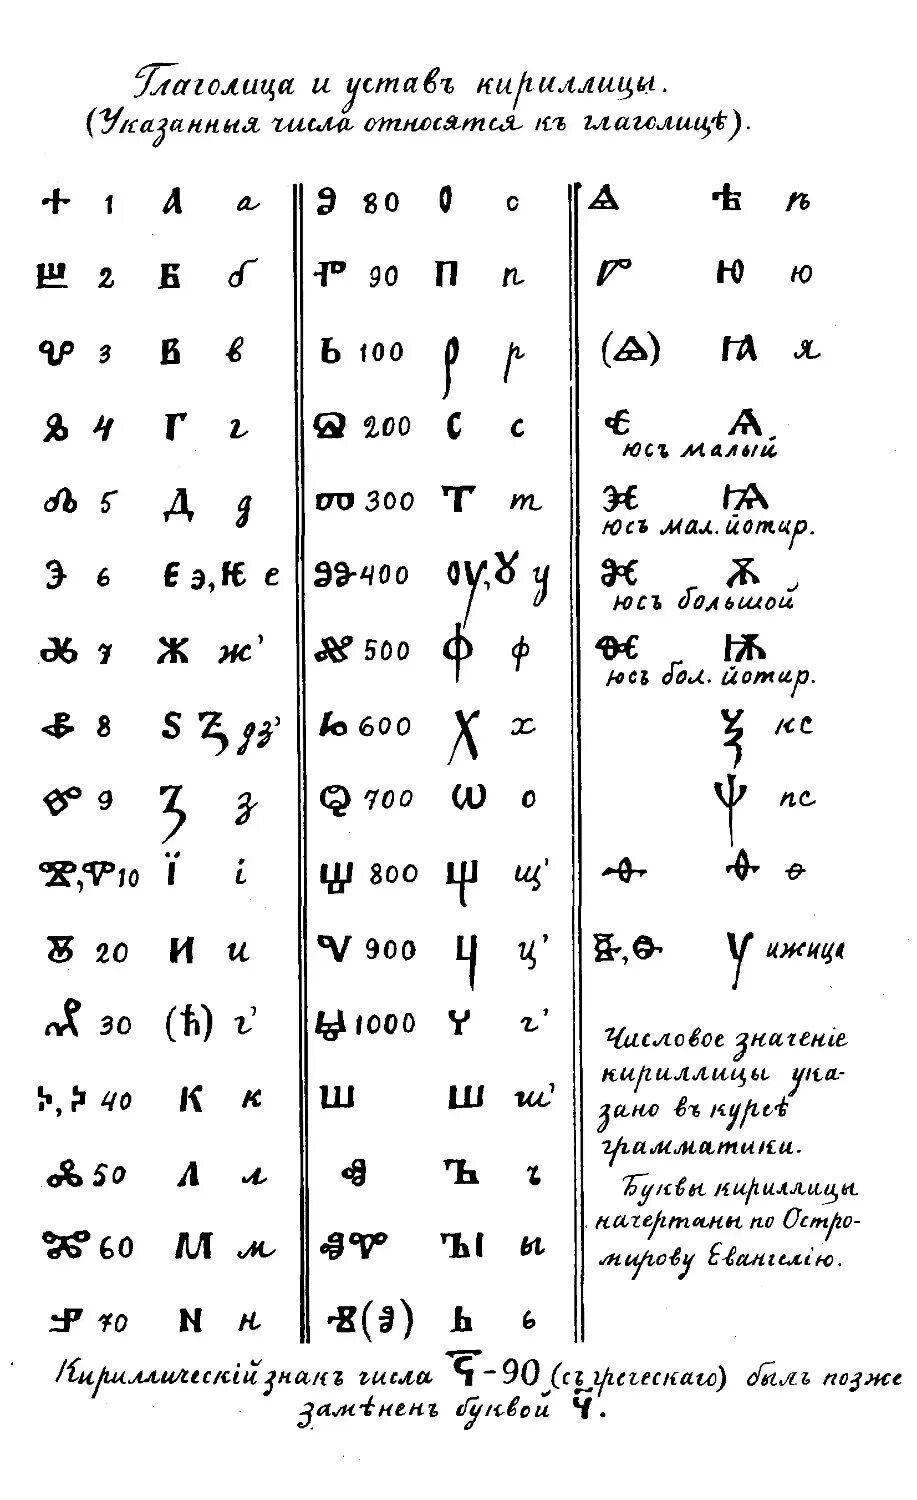 Глаголица и уставъ кириллицы.
(Указанныя числа относятся къ глаголицѣ).
Ⰰ 1 А а
Ⰱ 2 Б б
Ⰲ 3 В в
Ⰳ 4 Г г
Ⰴ 5 Д д
Ⰵ 6 Є э, Ѥ е
Ⰶ 7 Ж ж’
Ⰷ 8 Ѕ Ꙁ дз’
Ⰸ 9 З з
Ⰺ, Ⰹ 10 Ї і
Ⰻ 20 И и
Ⰼ 30 (Ћ) г’
Ⰽ, Ⰽ 40 К к
Ⰾ 50 Л л
Ⰿ 60 М м
Ⱀ 70 N н
Ⱁ 80 О о
Ⱂ 90 П п
Ⱃ 100 Р р
Ⱄ 200 С с
Ⱅ 300 Т т
Ⱆ 400 ОУ, Ꙋ у
Ⱇ 500 Ф ф
Ⱈ 600 Х х
Ⱉ 700 Ѡ о
Ⱋ 800 Щ щ’
Ⱌ 900 Ц ц’
Ⱍ 1000 Ч ч’
Ⱎ Ш ш’
Ⱏ Ъ ъ
ⰟⰉ ЪІ ы
Ⱐ (Ⱏ) Ь ь
Ⱑ Ѣ ѣ
Ⱓ Ю ю
(Ⱑ) Ꙗ я
Ⱔ Ѧ
юсъ малый
Ⱗ Ѩ
юсъ мал. йотир.
Ⱘ Ѫ
юсъ большой
Ⱙ Ѭ
юсъ бол. йотир.
Ѯ кс
Ѱ пс
Ⱚ Ѳ ѳ
Ⱛ, Ⱚ Ѵ ижица
Числовое значеніе
кириллицы ука-
зано въ курсѣ
грамматики.
Буквы кириллицы
начертаны по Остро-
мирову Евангелію.
Кириллическій знакъ числа Ҁ - 90 (съ греческаго) былъ позже
замѣненъ буквой Ч.